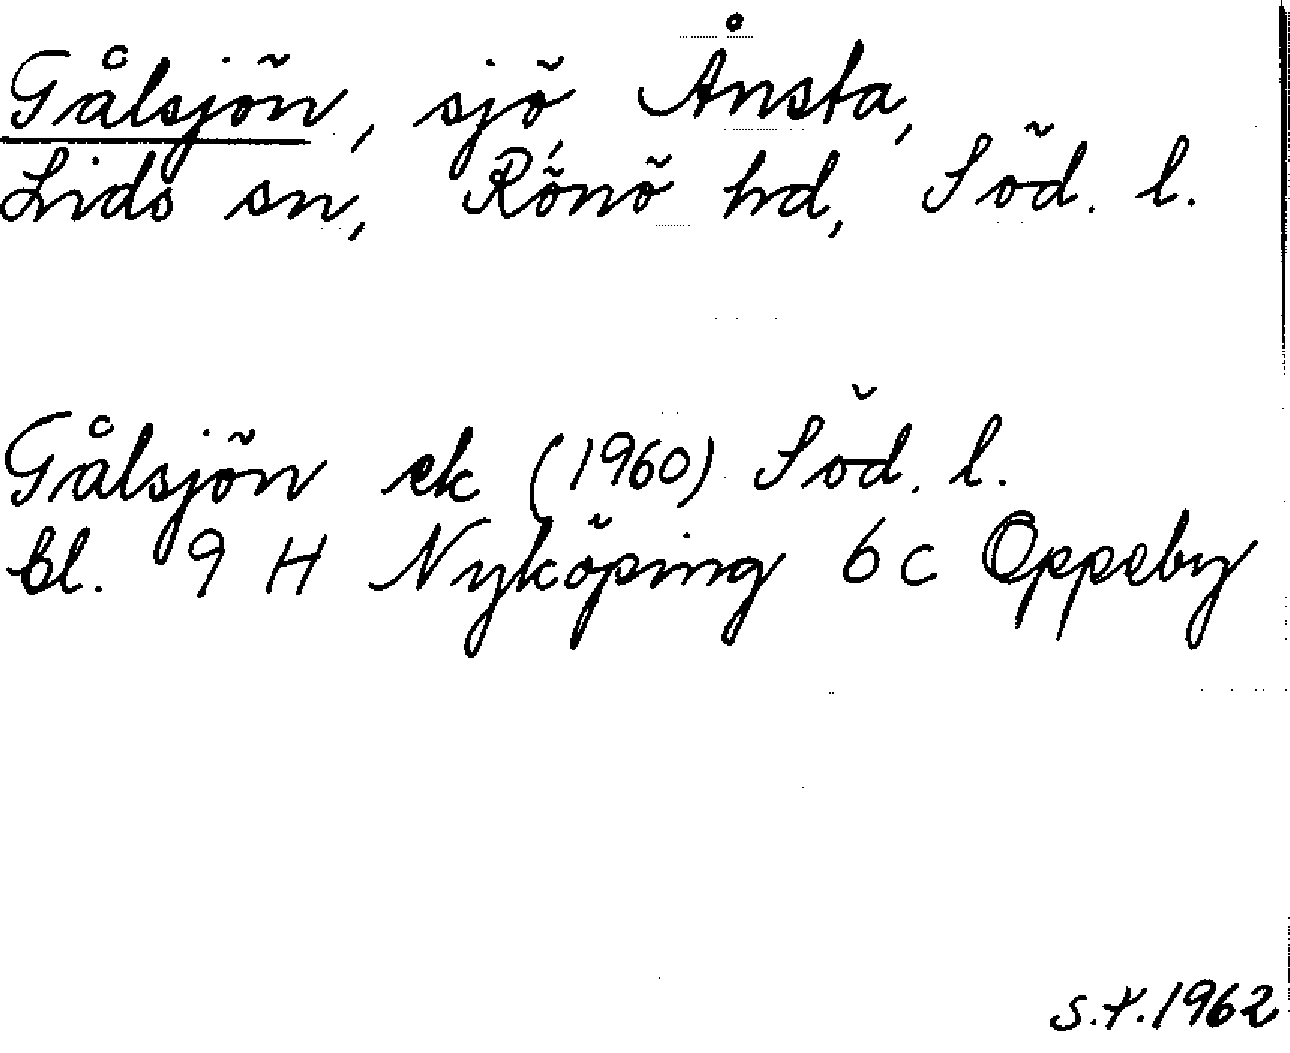 Gålsjön, sjö, Ånsta,
Lids sn, Rönö hd, Söd. l.
Gålsjön ek (1960) Söd. l.
bl. 9 H Nyköping 6 c Oppeby
S.F. 1962